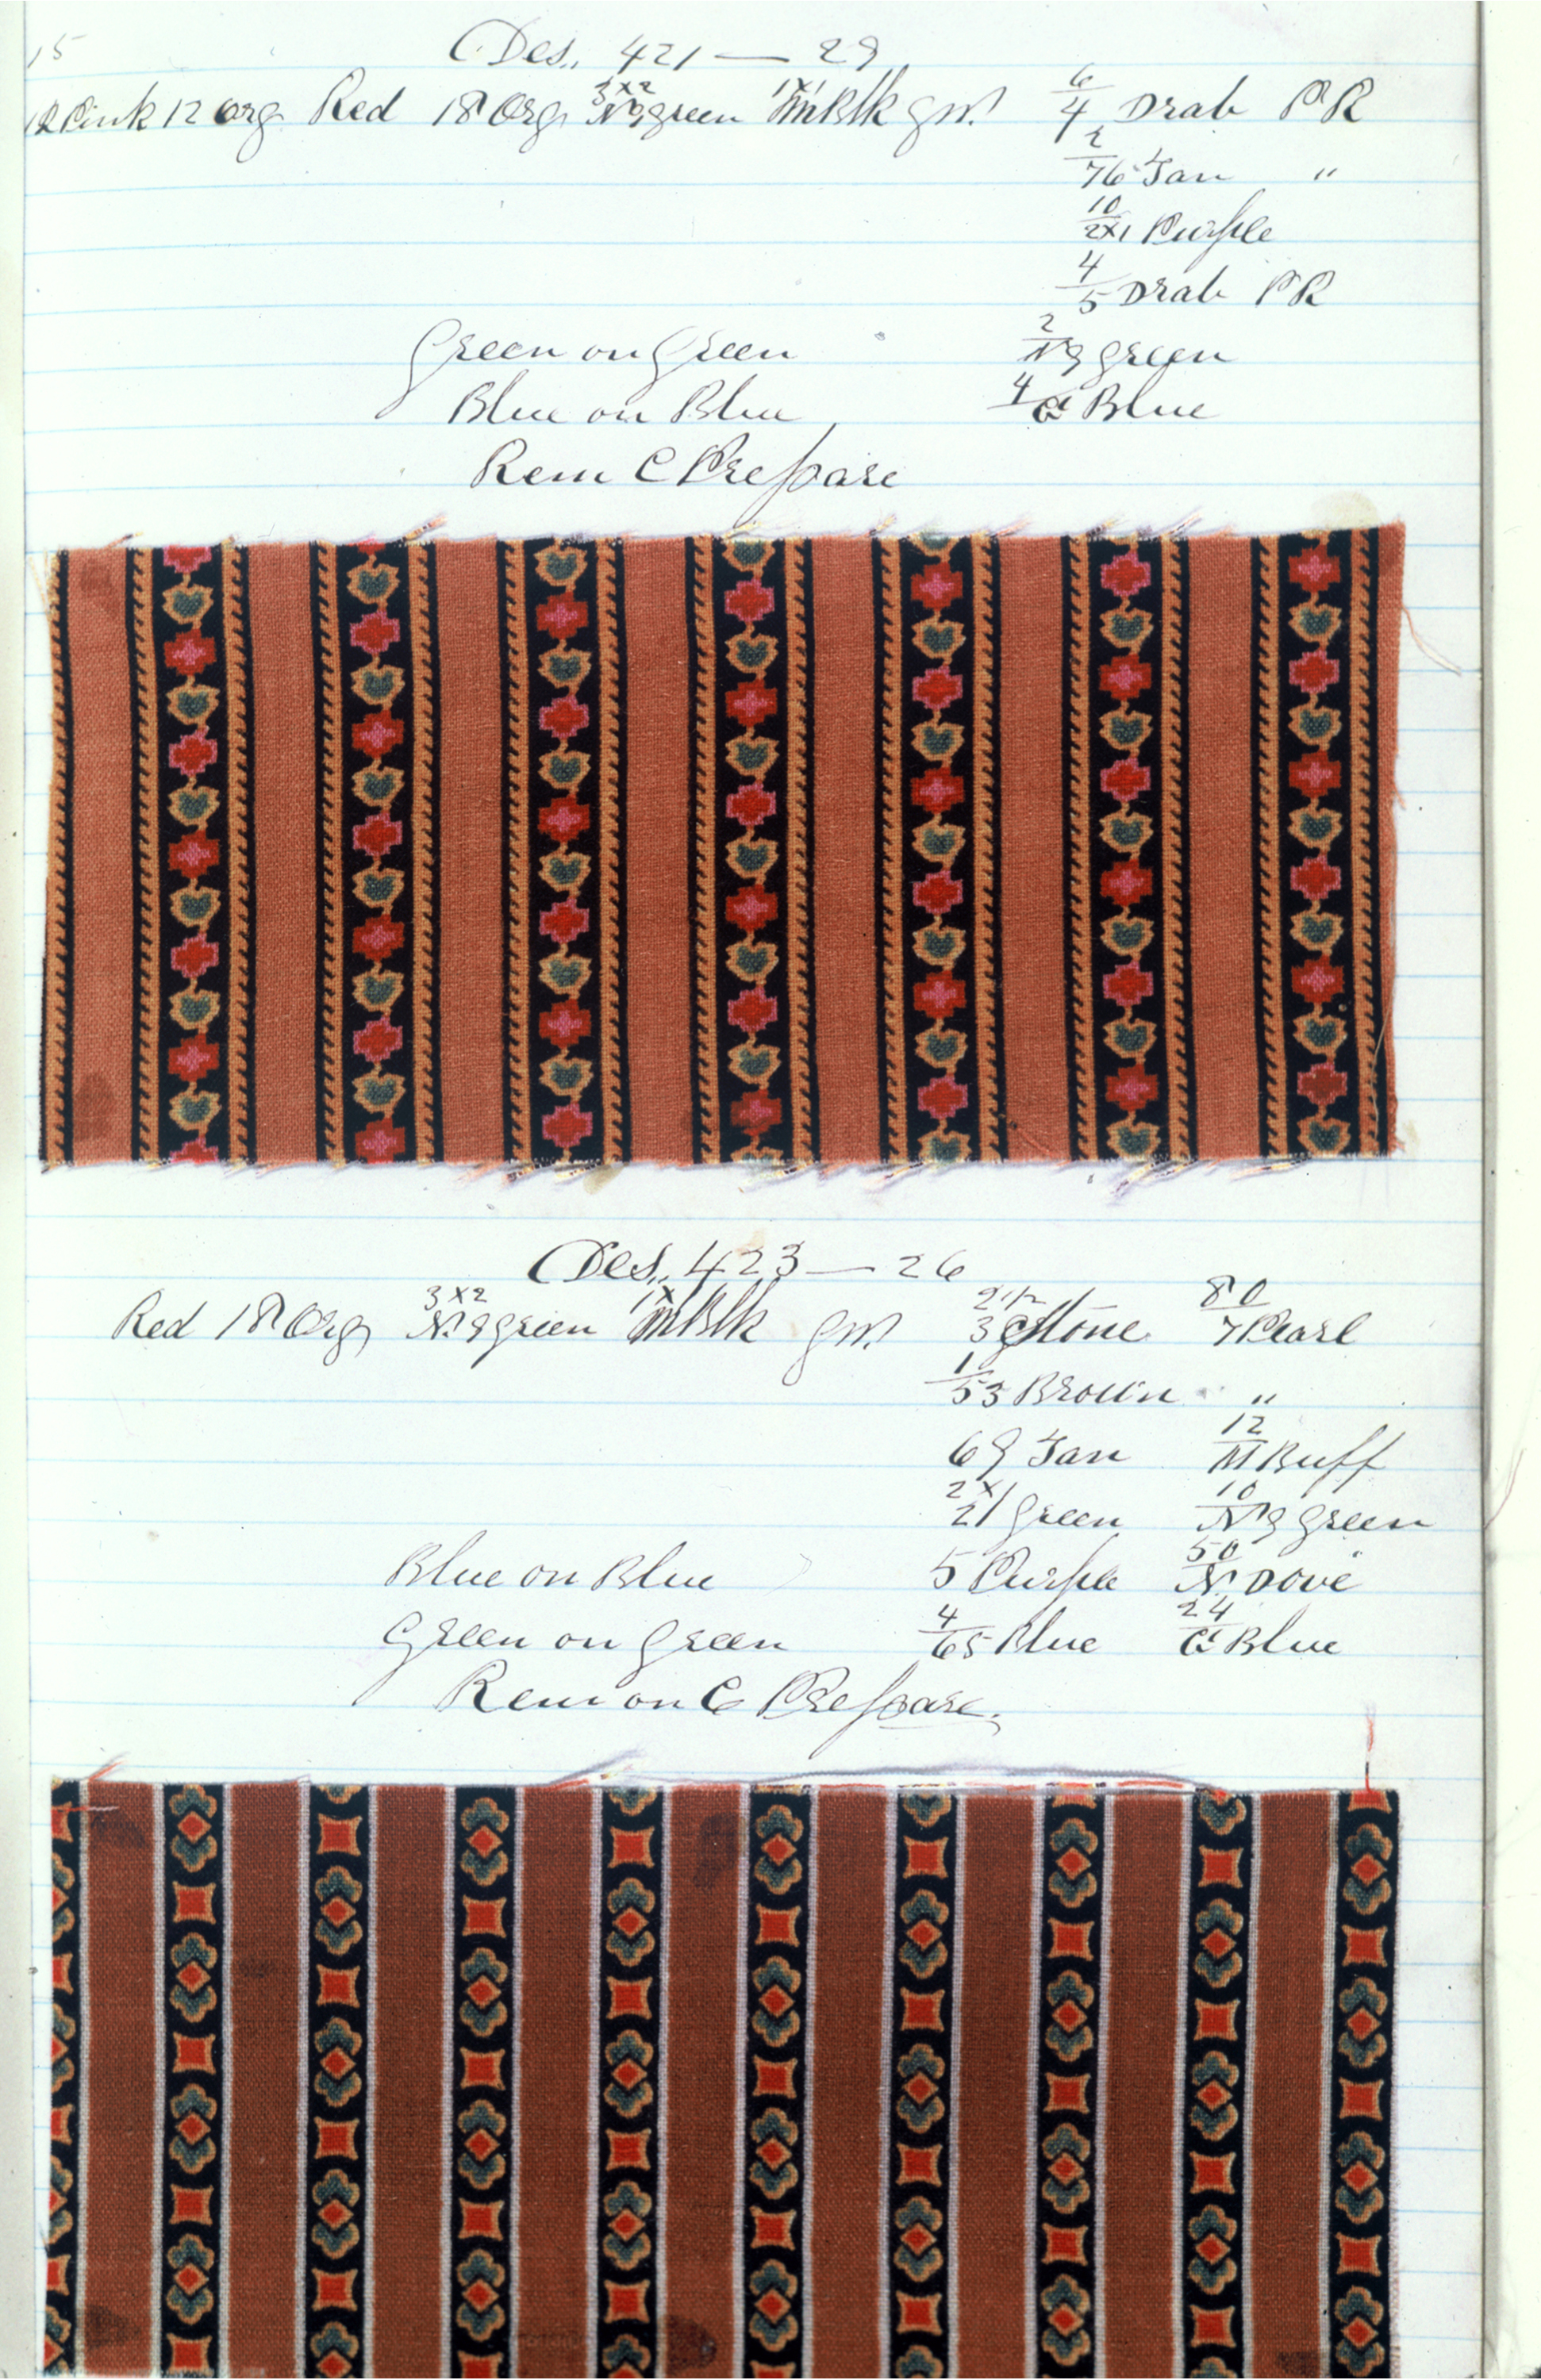 15
Des,, 421 — 29
12 Pink 12 Org Red 18 Org 3x2 Ng green 1x1 mBlk gm 6/4 Drab PR
2/76 Tan "
10/2x1 Purple
4/5 Drab PR
Green on Green 2/Ng green
Blue on Blue 4/G Blue
Rem C Prepare
Des,, 423 — 26
Red 18 Org 3x2 Ng green mBlk gm 3 Stone 80/7 Pearl
1/53 Brown "
69 Tan 12/M Buff
2x1/21 Green 10/Ng Green
Blue on Blue 5 Purple 50/N Dove
Green on Green 4/65 Blue 24/G Blue
Rem on C Prepare.